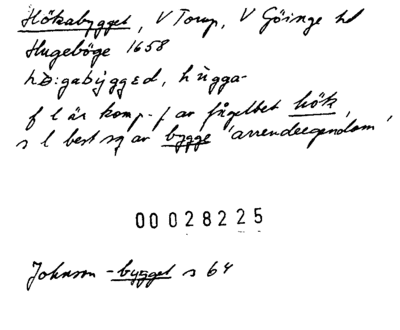 Hökabygget, V Torup, V Göinge hd
Hugeböge 1658
hö:gabygged, hùgga-
f l är komp.-f av fågelbet hök,
s l best sg av bygge 'arrendeegendom'
00028225
Johnson -bygget s 64